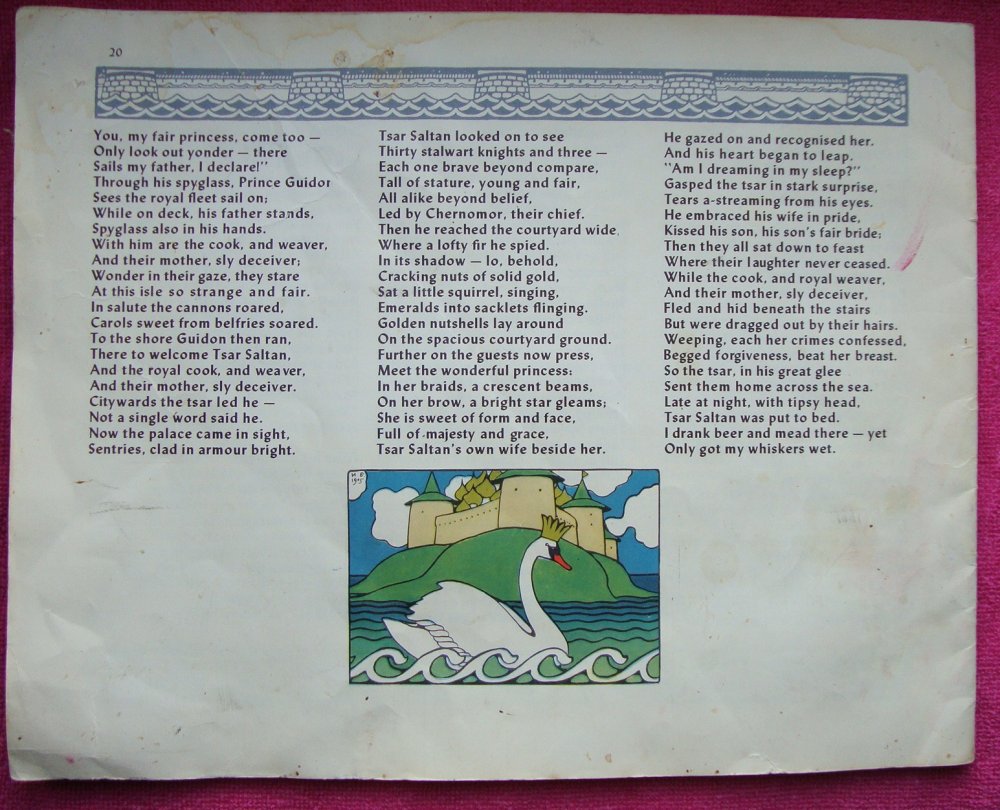 20
You, my fair princess, come too —
Only look out yonder — there
Sails my father, I declare!"
Through his spyglass, Prince Guidon
Sees the royal fleet sail on;
While on deck, his father stands,
Spyglass also in his hands.
With him are the cook, and weaver,
And their mother, sly deceiver;
Wonder in their gaze, they stare
At this isle so strange and fair.
In salute the cannons roared,
Carols sweet from belfries soared.
To the shore Guidon then ran,
There to welcome Tsar Saltan,
And the royal cook, and weaver,
And their mother, sly deceiver.
Citywards the tsar led he —
Not a single word said he.
Now the palace came in sight,
Sentries, clad in armour bright.
Tsar Saltan looked on to see
Thirty stalwart knights and three —
Each one brave beyond compare,
Tall of stature, young and fair,
All alike beyond belief,
Led by Chernomor, their chief.
Then he reached the courtyard wide
Where a lofty fir he spied.
In its shadow — lo, behold,
Cracking nuts of solid gold,
Sat a little squirrel, singing,
Emeralds into sacklets flinging.
Golden nutshells lay around
On the spacious courtyard ground.
Further on the guests now press,
Meet the wonderful princess:
In her braids, a crescent beams,
On her brow, a bright star gleams;
She is sweet of form and face,
Full of majesty and grace,
Tsar Saltan's own wife beside her.
He gazed on and recognised her.
And his heart began to leap.
"Am I dreaming in my sleep?"
Gasped the tsar in stark surprise,
Tears a-streaming from his eyes.
He embraced his wife in pride,
Kissed his son, his son's fair bride;
Then they all sat down to feast
Where their laughter never ceased.
While the cook, and royal weaver,
And their mother, sly deceiver,
Fled and hid beneath the stairs
But were dragged out by their hairs.
Weeping, each her crimes confessed,
Begged forgiveness, beat her breast.
So the tsar, in his great glee
Sent them home across the sea.
Late at night, with tipsy head,
Tsar Saltan was put to bed.
I drank beer and mead there — yet
Only got my whiskers wet.
И Б
1905